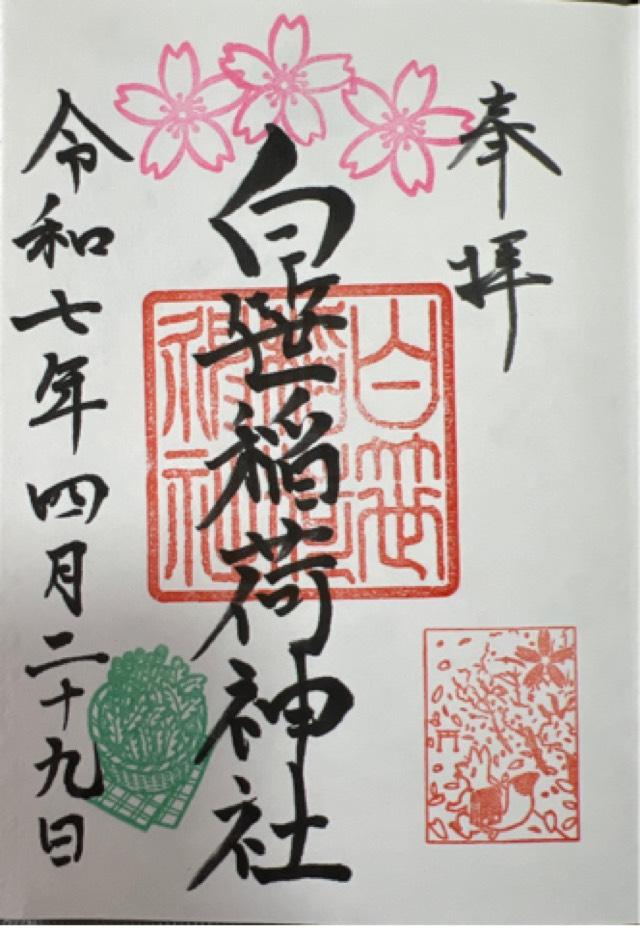 奉拝
白笹稲荷神社
令和七年四月二十九日
白笹
稲荷
神社